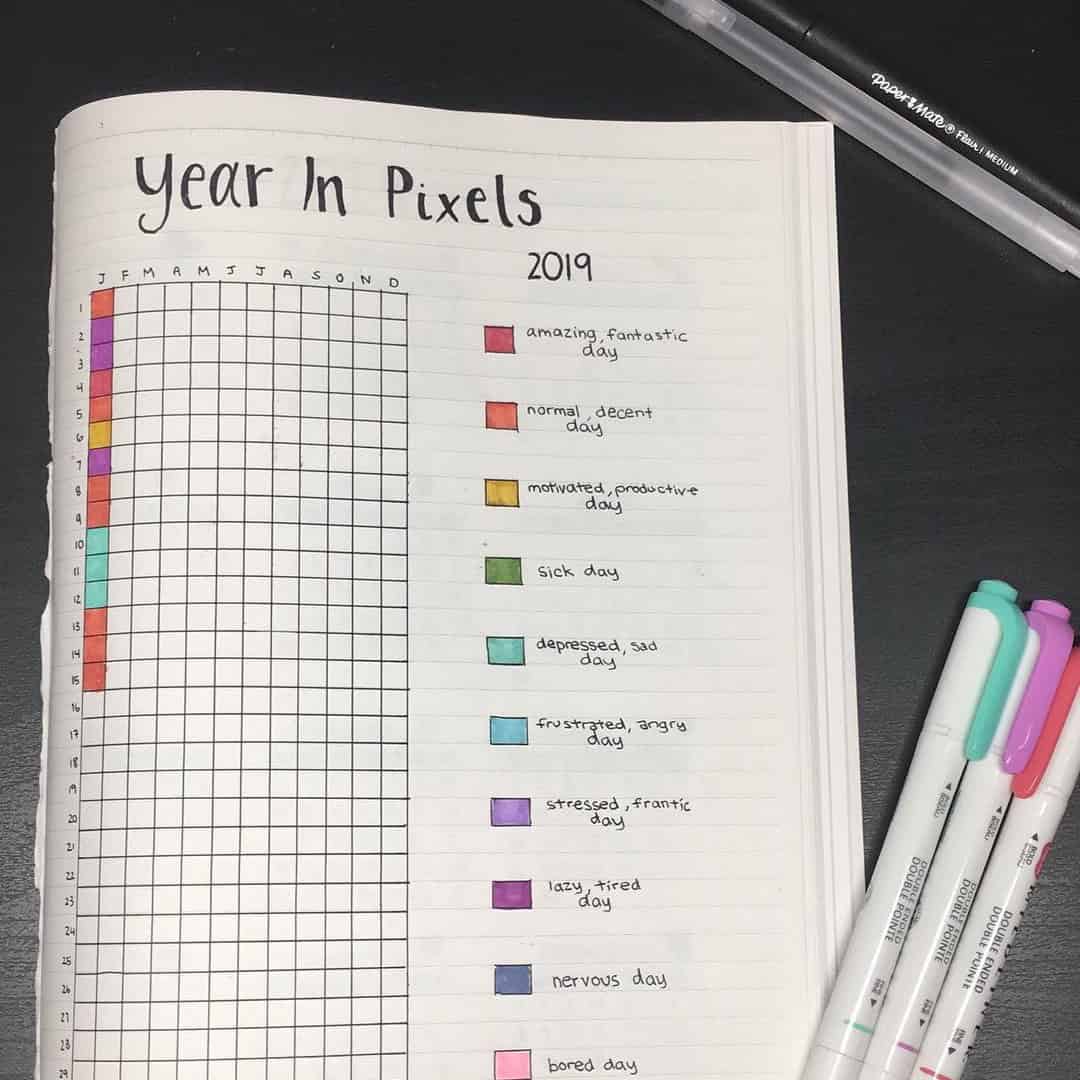 Year In Pixels
2019
J F M A M J J A S O N D
1
2
3
4
5
6
7
8
9
10
11
12
13
14
15
16
17
18
19
20
21
22
23
24
25
26
27
28
29
amazing, fantastic
day
normal, decent
day
motivated, productive
day
sick day
depressed, sad
day
frustrated, angry
day
stressed, frantic
day
lazy, tired
day
nervous day
bored day
Paper Mate® Flair! MEDIUM
DOUBLE ENDED
DOUBLE POINTE
DOUBLE ENDED
DOUBLE POINTE
DOUBLE ENDED
DOUBLE POINTE